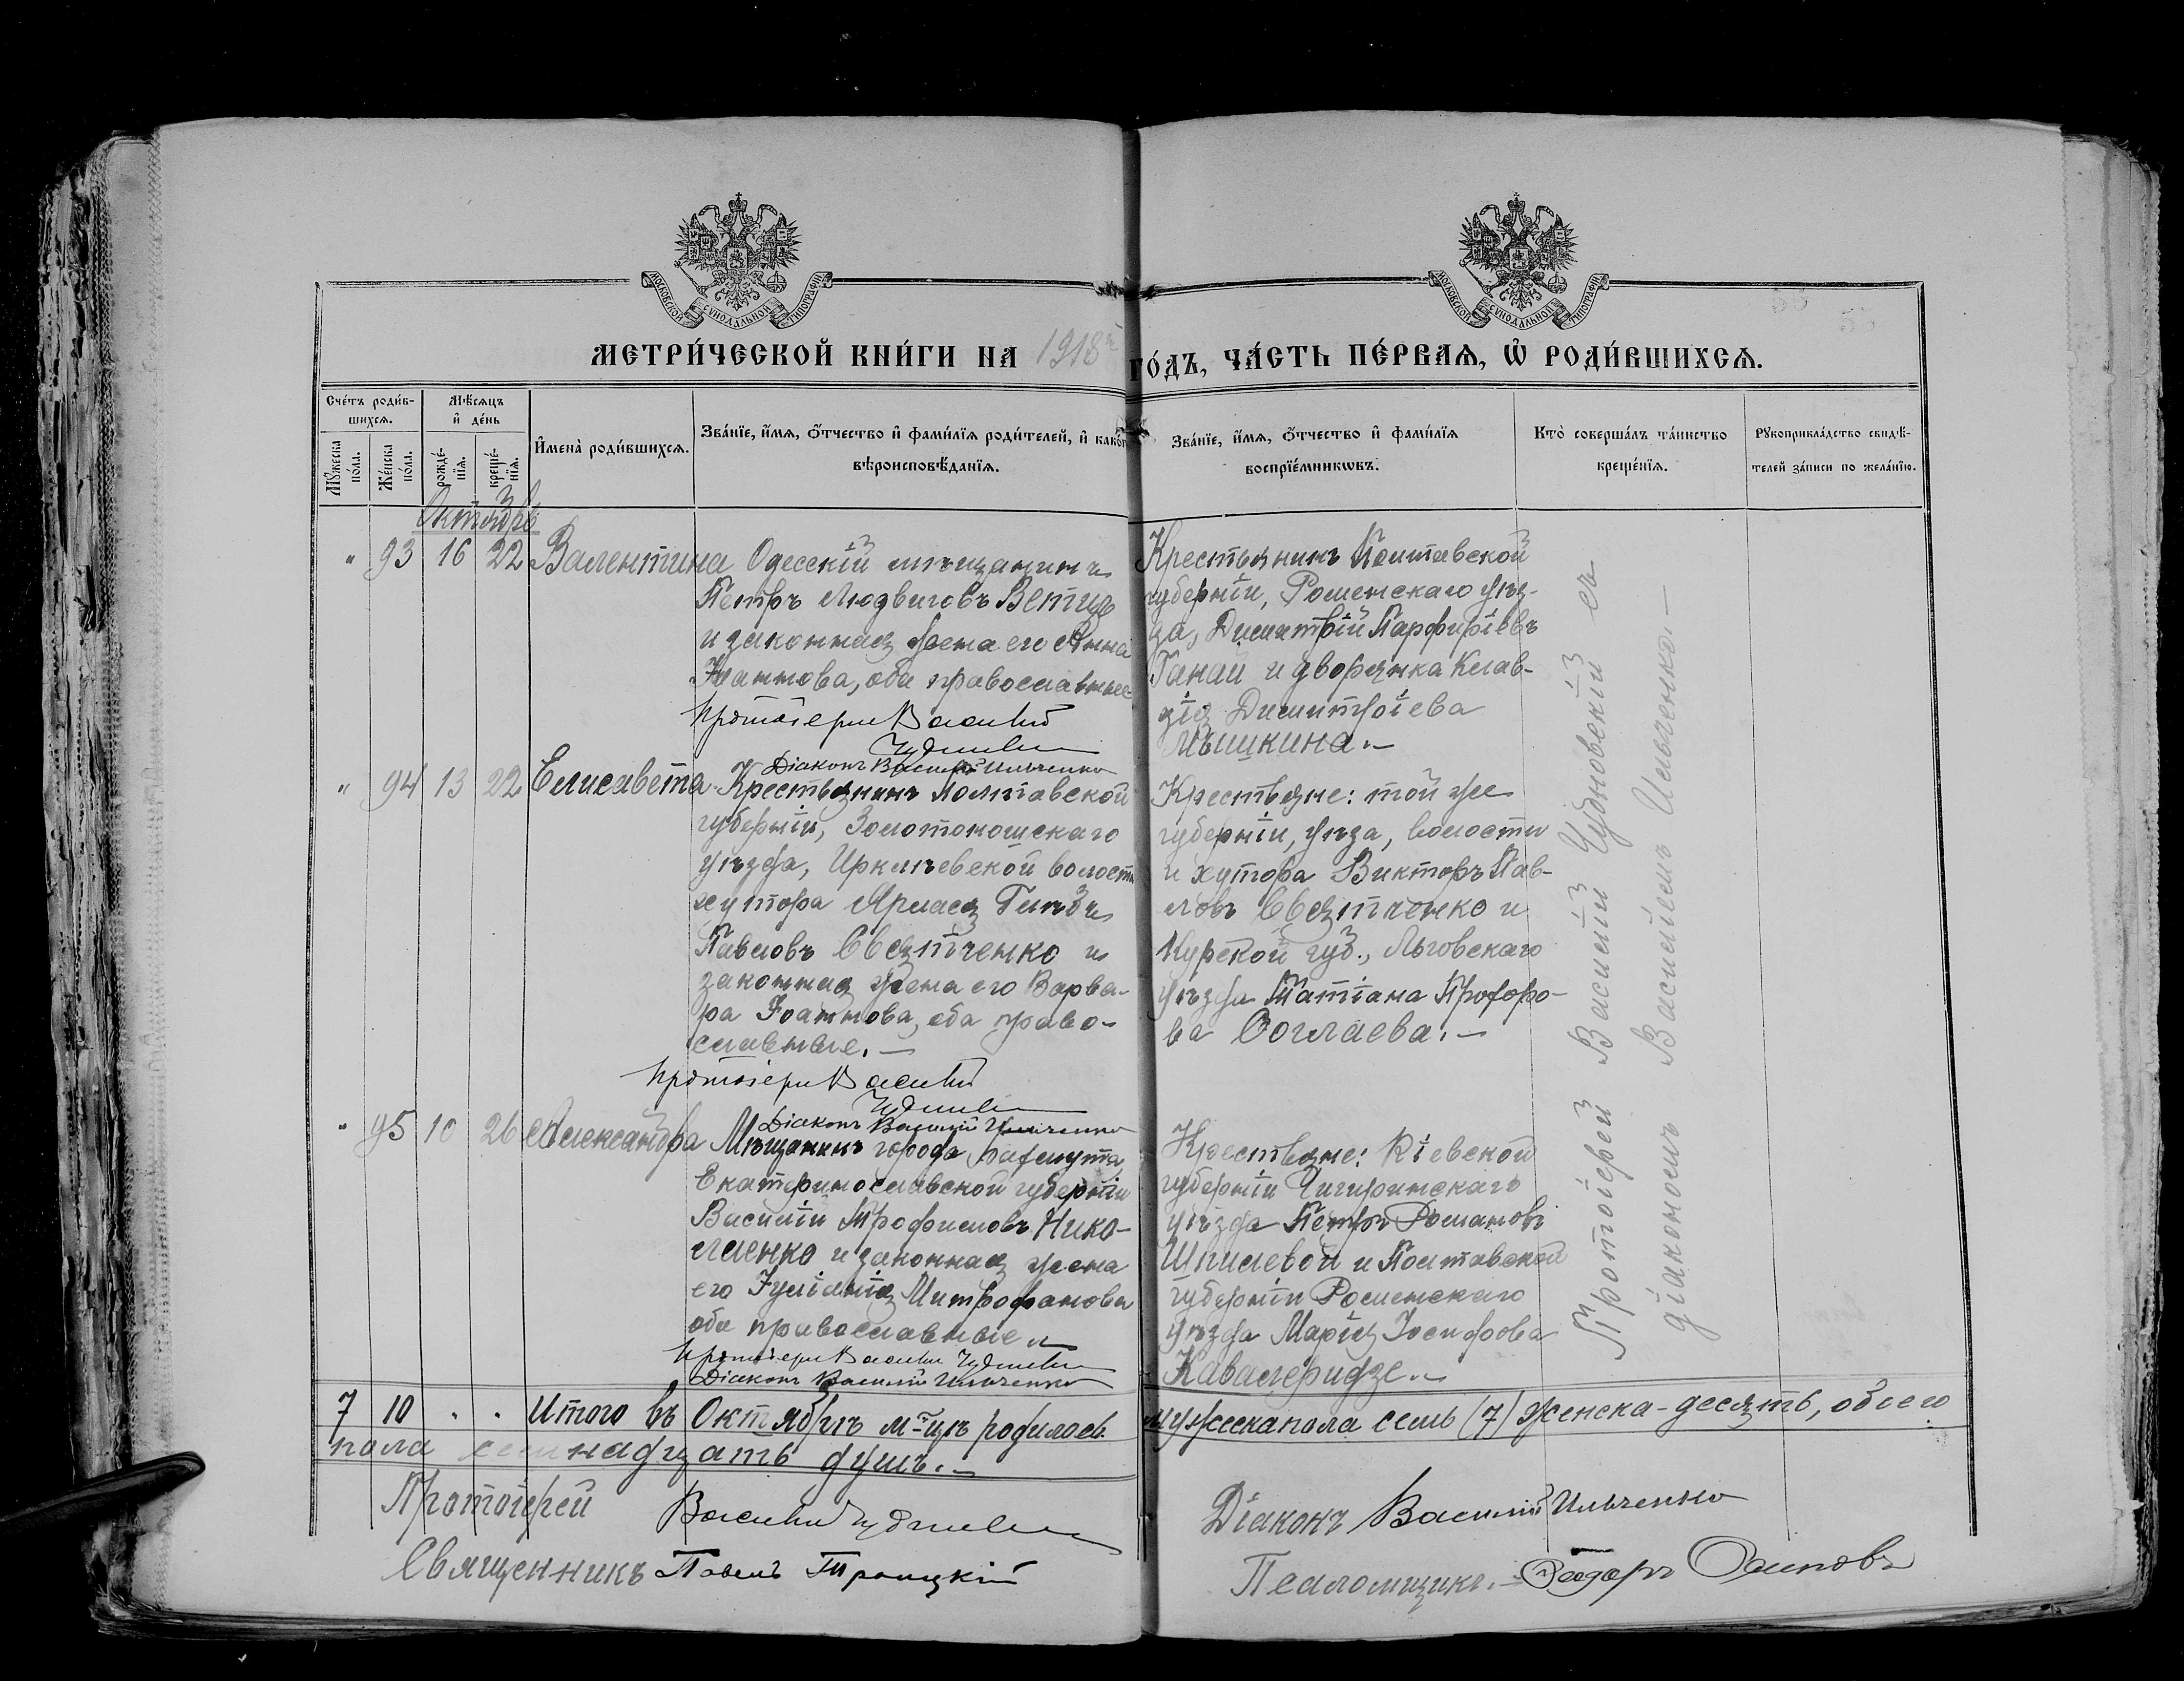 МОСКОВСКОЙ СѴНОДАЛЬНОЙ ТИПОГРАФІИ
МОСКОВСКОЙ СѴНОДАЛЬНОЙ ТИПОГРАФІИ
МЕТРИ́ЧЕСКОЙ КНИ́ГИ НА 1918й ГО́ДЪ, ЧА́СТЬ ПЕ́РВАЯ, Ѡ҆ РОДИ́ВШИХСЯ.
Сче́тъ роди́в-
шихся.
Мꙋ́жеска по́ла.
Же́нска по́ла.
Мѣ́сяцъ
и҆ де́нь
рожде́-
нїя.
креще́-
нїя.
И҆мена̀ роди́вшихся.
Зва́нїе, и҆́мя, ѻ҆́тчество и҆ фами́лїя роди́телей, и҆ како́гѡ
вѣроисповѣ́данїя.
Зва́нїе, и҆́мя, ѻ҆́тчество и҆ фами́лїя
воспрїе́мникѡвъ.
Кто̀ соверша́лъ та́инство
креще́нїя.
Рꙋкоприкла́дство свидѣ́-
телей за́писи по жела́нїю.
Октябрь
" 93 16 22 Валентина
Одесскій мѣщанинъ
Петръ Людвиговъ Ветцъ
и законная жена его Анна
Іоаннова, оба православные
Протоіерей Василій
Чудновскій
Діаконъ Василій Ильченко
Крестьянинъ Полтавской
губерніи, Роменскаго уѣз-
да, Димитрій Парфиріевъ
Ганай и дворянка Клав-
дія Димитріева
Мышкина.-
" 94 13 22 Елисавета
Крестьянинъ Полтавской
губерніи, Золотоношскаго
уѣзда, Ирклѣевской волости
хутора Глѣбъ
Павловъ Свѣтченко и
законная жена его Варва-
ра Іоаннова, оба право-
славные.-
Протоіерей Василій
Чудновскій
Діаконъ Василій Ильченко
Крестьяне: той же
губерніи, уѣзда, волости
и хутора Викторъ Пав-
ловъ и
Курской губ., Льговскаго
уѣзда Татіана Прохоро-
ва
" 95 10 26 Александра
Мѣщанинъ города Бахмута,
Екатеринославской губерніи
Василій Трофимовъ Нико-
лаенко и законная жена
его Іуліанія Митрофанова
оба православные.-
Протоіерей Василій Чудновскій
Діаконъ Василій Ильченко
Крестьяне: Кіевской
губерніи Чигиринскаго
уѣзда Петръ Романовъ
Шпилевой и Полтавской
губерніи Роменскаго
уѣзда Марія Іосифова
Кавалеридзе.-
Протоіерей Василій Чудновскій съ
діакономъ Василіемъ Ильченко.-
7 10 " " Итого въ Октябрѣ м-цѣ родилось мужескапола семь (7) женска-десять, обоего
пола семнадцать душъ.-
Протоіерей Василій Чудновскій
Священникъ Павелъ Троицкій
Діаконъ Василій Ильченко
Псаломщикъ.- Ѳеодоръ Осиповъ